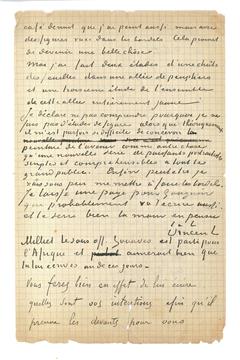 café dont que j'ai peint aussi mais avec
des figures vues dans les bordels. Cela promet
de devenir une belle chose.
Moi j'ai fait deux études d'une chûte
des feuilles dans une allée de peupliers
et une troisième étude de l'ensemble
de cette allée entièrement jaune.
Je déclare ne pas comprendre pourquoi je ne
fais pas d'études de figure alors que théoriquement
il m'est parfois si difficile de concevoir la
peinture de l'avenir comme autre chose
qu'une nouvelle série de puissants portraitistes
simples et compréhensibles à tout le
grand public. Enfin peut-être je
vais sous peu me mettre à faire les bordels.
Je laisse une page pour Gauguin
qui probablement va t'écrire aussi
et te serre bien la main en pensée
t. à t.
Vincent
Milliet le sous off. Zouaves est parti pour
l'Afrique et aimerait bien que
tu lui écrives un de ces jours.
Vous ferez bien en effet de lui écrire
quelles sont vos intentions afin qu'il
prenne les devants pour vous